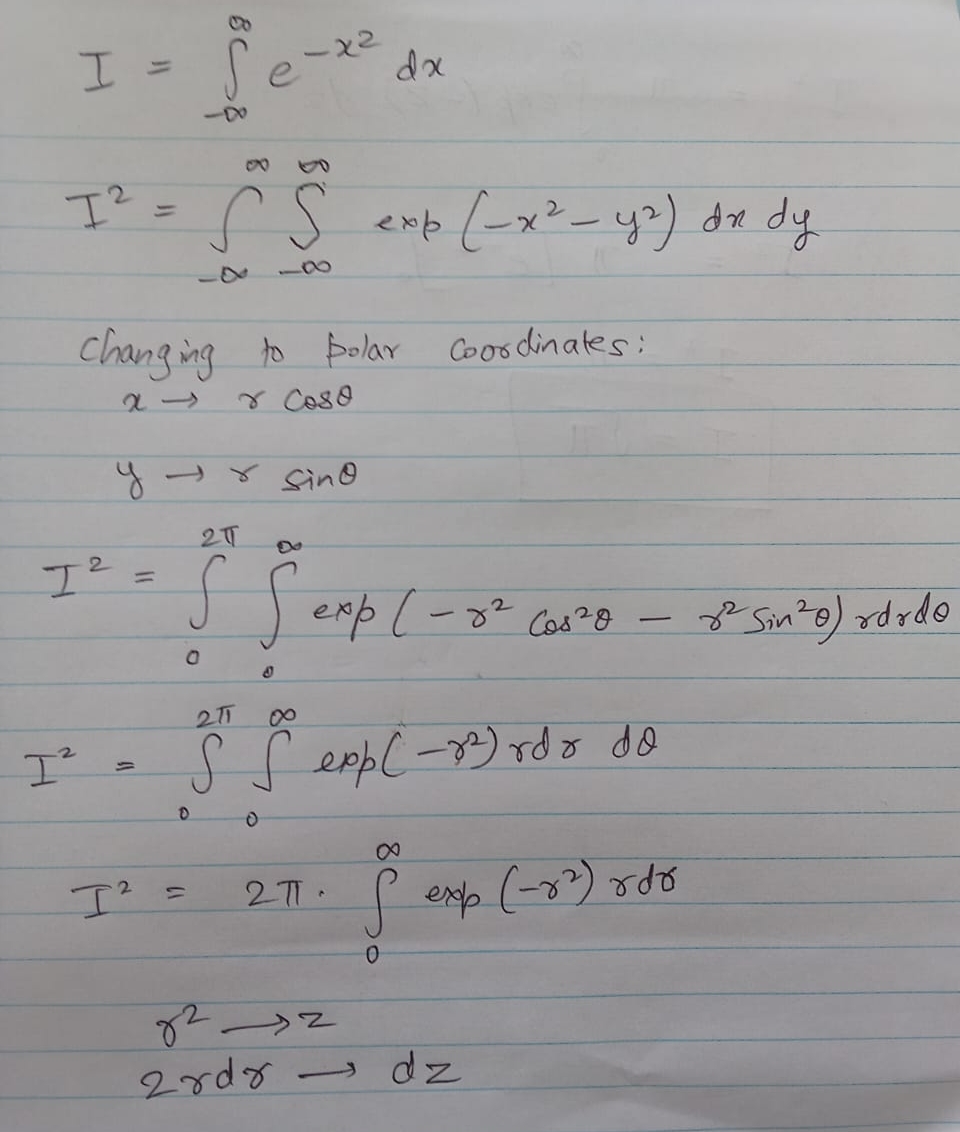 I = ∫_{-∞}^{∞} e^{-x²} dx
I² = ∫_{-∞}^{∞} ∫_{-∞}^{∞} exp (-x² - y²) dx dy
Changing to polar coordinates:
x → r cosθ
y → r sinθ
I² = ∫_{0}^{2π} ∫_{0}^{∞} exp (-r² cos²θ - r² sin²θ) rdrdθ
I² = ∫_{0}^{2π} ∫_{0}^{∞} exp(-r²) rdr dθ
I² = 2π. ∫_{0}^{∞} exp (-r²) rdr
r² → z
2rdr → dz